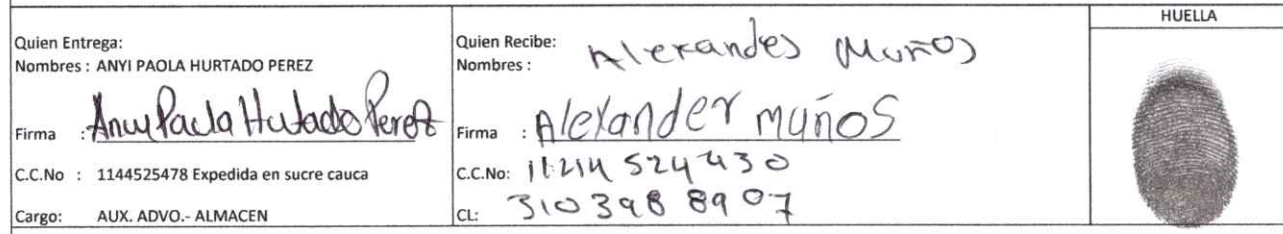 Quien Entrega:
Nombres : ANYI PAOLA HURTADO PEREZ
Firma : Anyi Paola Hurtado Perez
C.C.No : 1144525478 Expedida en sucre cauca
Cargo: AUX. ADVO.- ALMACEN
Quien Recibe:
Nombres : Alexandes Muños
Firma : Alexander muños
C.C.No: 524430
CL: 310 398 8907
HUELLA